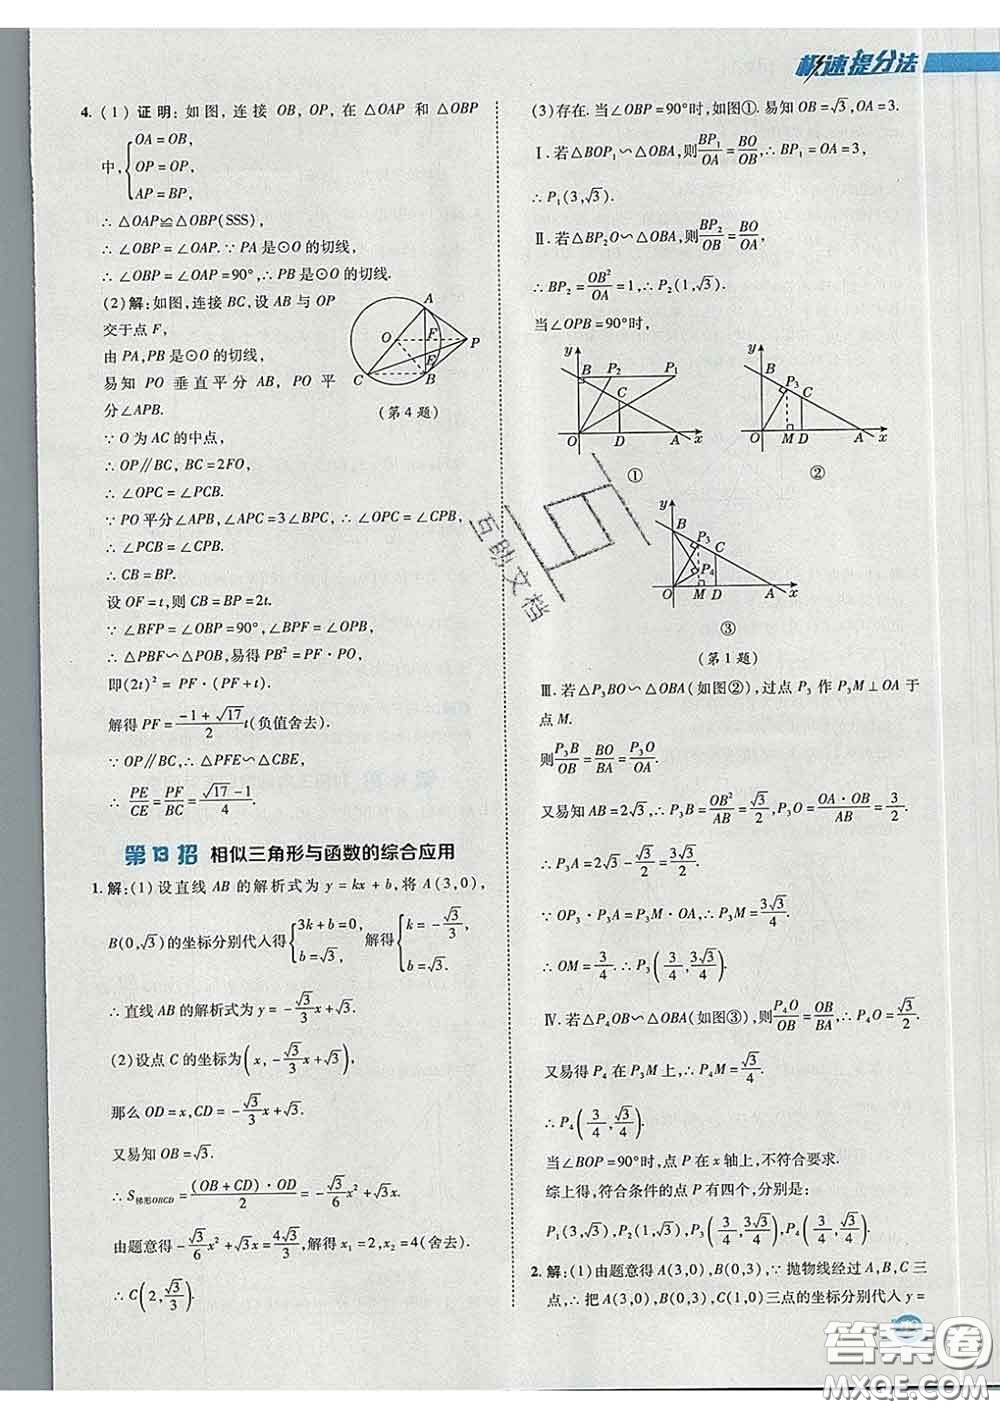 极速提分法
4. (1) 证明: 如图, 连接 OB, OP, 在 △OAP 和 △OBP
中, { OA = OB,
OP = OP,
AP = BP,
∴ △OAP≌△OBP(SSS),
∴ ∠OBP = ∠OAP. ∵ PA 是⊙O 的切线,
∴ ∠OBP = ∠OAP = 90°, ∴ PB 是⊙O 的切线.
(2) 解: 如图, 连接 BC, 设 AB 与 OP
交于点 F,
由 PA, PB 是⊙O 的切线,
易知 PO 垂直平分 AB, PO 平
分∠APB.
A
O F P
E
C B
(第 4 题)
∵ O 为 AC 的中点,
∴ OP∥BC, BC = 2FO,
∴ ∠OPC = ∠PCB.
∵ PO 平分∠APB, ∠APC = 3∠BPC, ∴ ∠OPC = ∠CPB,
∴ ∠PCB = ∠CPB.
∴ CB = BP.
设 OF = t, 则 CB = BP = 2t.
∵ ∠BFP = ∠OBP = 90°, ∠BPF = ∠OPB,
∴ △PBF∽△POB, 易得 PB² = PF · PO,
即 (2t)² = PF · (PF + t),
解得 PF = (-1+√17)/2 t (负值舍去).
∵ OP∥BC, ∴ △PFE∽△CBE,
∴ PE/CE = PF/BC = (√17-1)/4.
第 13 招 相似三角形与函数的综合应用
1. 解: (1) 设直线 AB 的解析式为 y = kx + b, 将 A(3,0),
B(0,√3) 的坐标分别代入得 { 3k + b = 0, b = √3, 解得 { k = -√3/3, b = √3.
∴ 直线 AB 的解析式为 y = -√3/3 x + √3.
(2) 设点 C 的坐标为 (x, -√3/3 x + √3),
那么 OD = x, CD = -√3/3 x + √3.
又易知 OB = √3.
∴ S梯形OBCD = (OB + CD) · OD / 2 = -√3/6 x² + √3 x.
由题意得 -√3/6 x² + √3 x = 4√3/3, 解得 x₁ = 2, x₂ = 4 (舍去).
∴ C(2, √3/3).
(3) 存在. 当∠OBP = 90°时, 如图①. 易知 OB = √3, OA = 3.
Ⅰ. 若△BOP₁∽△OBA, 则 BP₁/OA = BO/OB, ∴ BP₁ = OA = 3,
∴ P₁(3,√3).
Ⅱ. 若△BP₂O∽△OBA, 则 BP₂/OB = BO/OA,
∴ BP₂ = OB²/OA = 1, ∴ P₂(1,√3).
当∠OPB = 90°时,
y B P₂ P₁ C O D A x
①
y B P₃ C O M D A x
②
y B P₃ C P₄ O M D A x
③
(第 1 题)
Ⅲ. 若△P₃BO∽△OBA (如图②), 过点 P₃ 作 P₃M⊥OA 于
点 M.
则 P₃B/OB = BO/BA = P₃O/OA.
又易知 AB = 2√3, ∴ P₃B = OB²/AB = √3/2, P₃O = OA · OB/AB = 3/2.
∴ P₃A = 2√3 - √3/2 = 3√3/2.
∵ OP₃ · P₃A = P₃M · OA, ∴ P₃M = 3√3/4.
∴ OM = 3/4. ∴ P₃(3/4, 3√3/4).
Ⅳ. 若△P₄OB∽△OBA (如图③), 则 P₄O/OB = OB/BA, ∴ P₄O = √3/2.
又易得 P₄ 在 P₃M 上, ∴ P₄M = √3/4.
∴ P₄(3/4, √3/4).
当∠BOP = 90°时, 点 P 在 x 轴上, 不符合要求.
综上得, 符合条件的点 P 有四个, 分别是:
P₁(3,√3), P₂(1,√3), P₃(3/4, 3√3/4), P₄(3/4, √3/4).
2. 解: (1) 由题意得 A(3,0), B(0,3), ∵ 抛物线经过 A, B, C 三
点, ∴ 把 A(3,0), B(0,3), C(1,0) 三点的坐标分别代入 y =
互助文档
答案圈
MXQE.COM